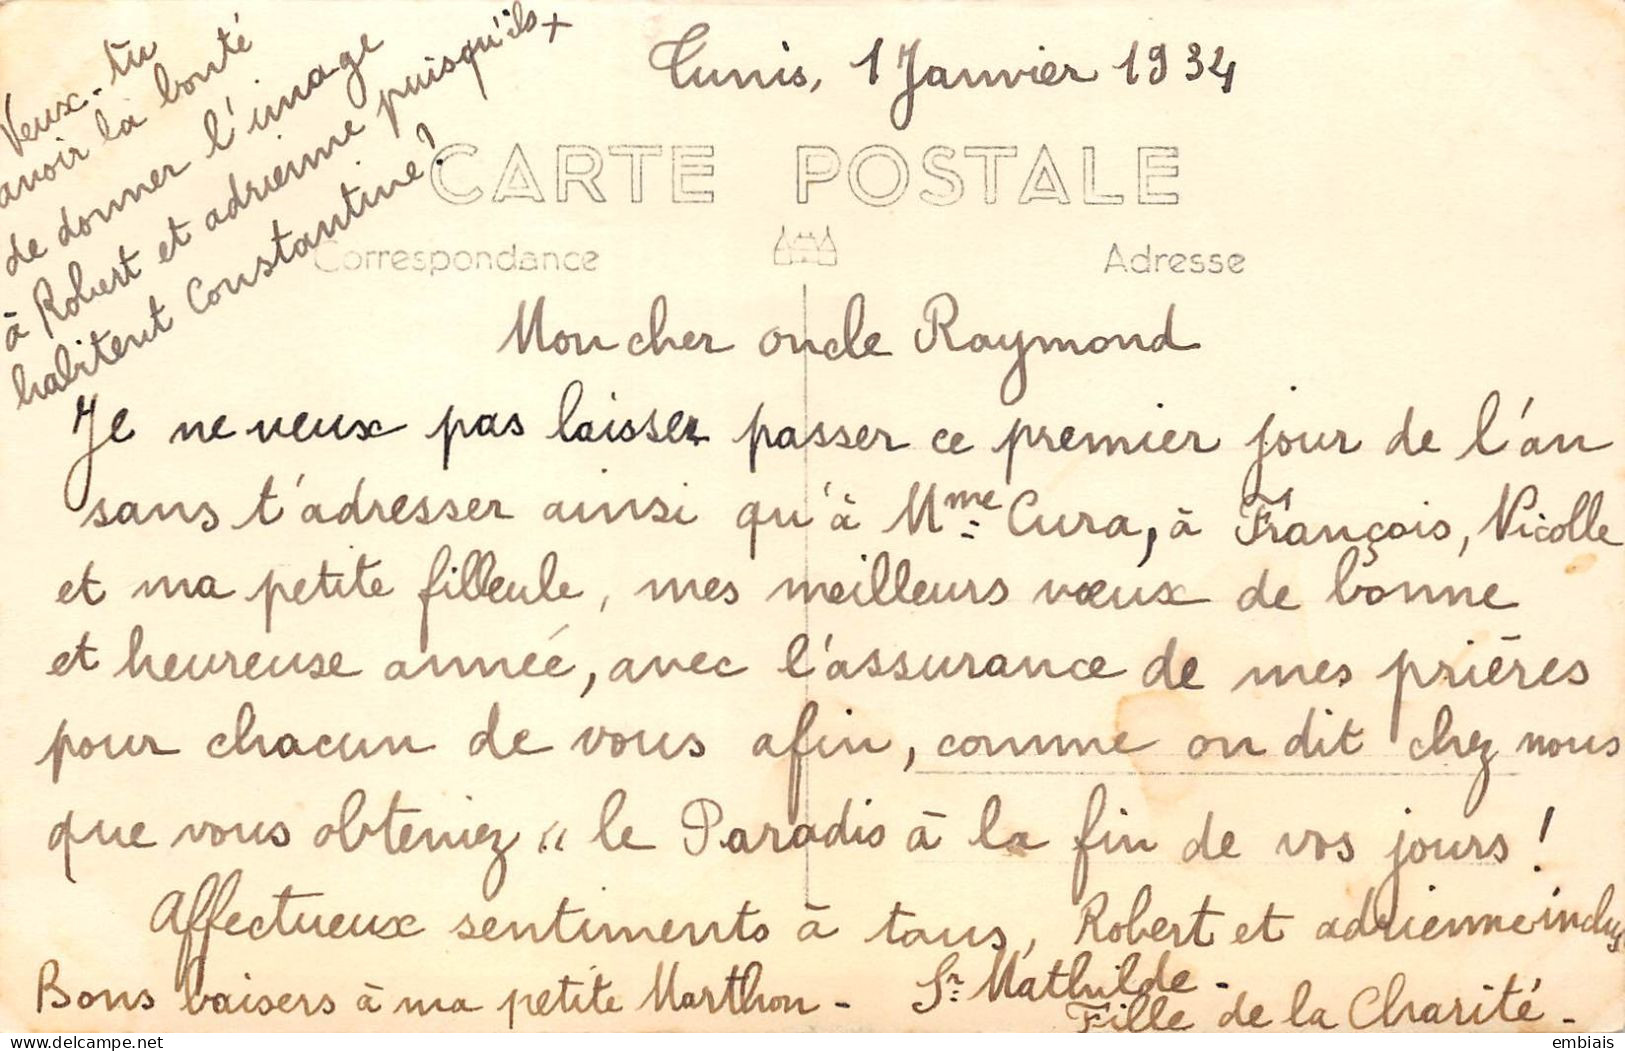 Veux-tu
avoir la bonté
de donner l'image
à Robert et adrienne puisqu'ils +
habitent Constantine ?
Tunis, 1 Janvier 1934
CARTE POSTALE
Correspondance
Adresse
Mon cher oncle Raymond
Je ne veux pas laisser passer ce premier jour de l'an
sans t'adresser ainsi qu'à Mme Cura, à François, Nicolle
et ma petite filleule, mes meilleurs vœux de bonne
et heureuse année, avec l'assurance de mes prières
pour chacun de vous afin, comme on dit chez nous
que vous obteniez " le Paradis à la fin de vos jours !
Affectueux sentiments à tous, Robert et adrienne inclus
Bons baisers à ma petite Marthon - Sr Mathilde -
Fille de la Charité -
embiais